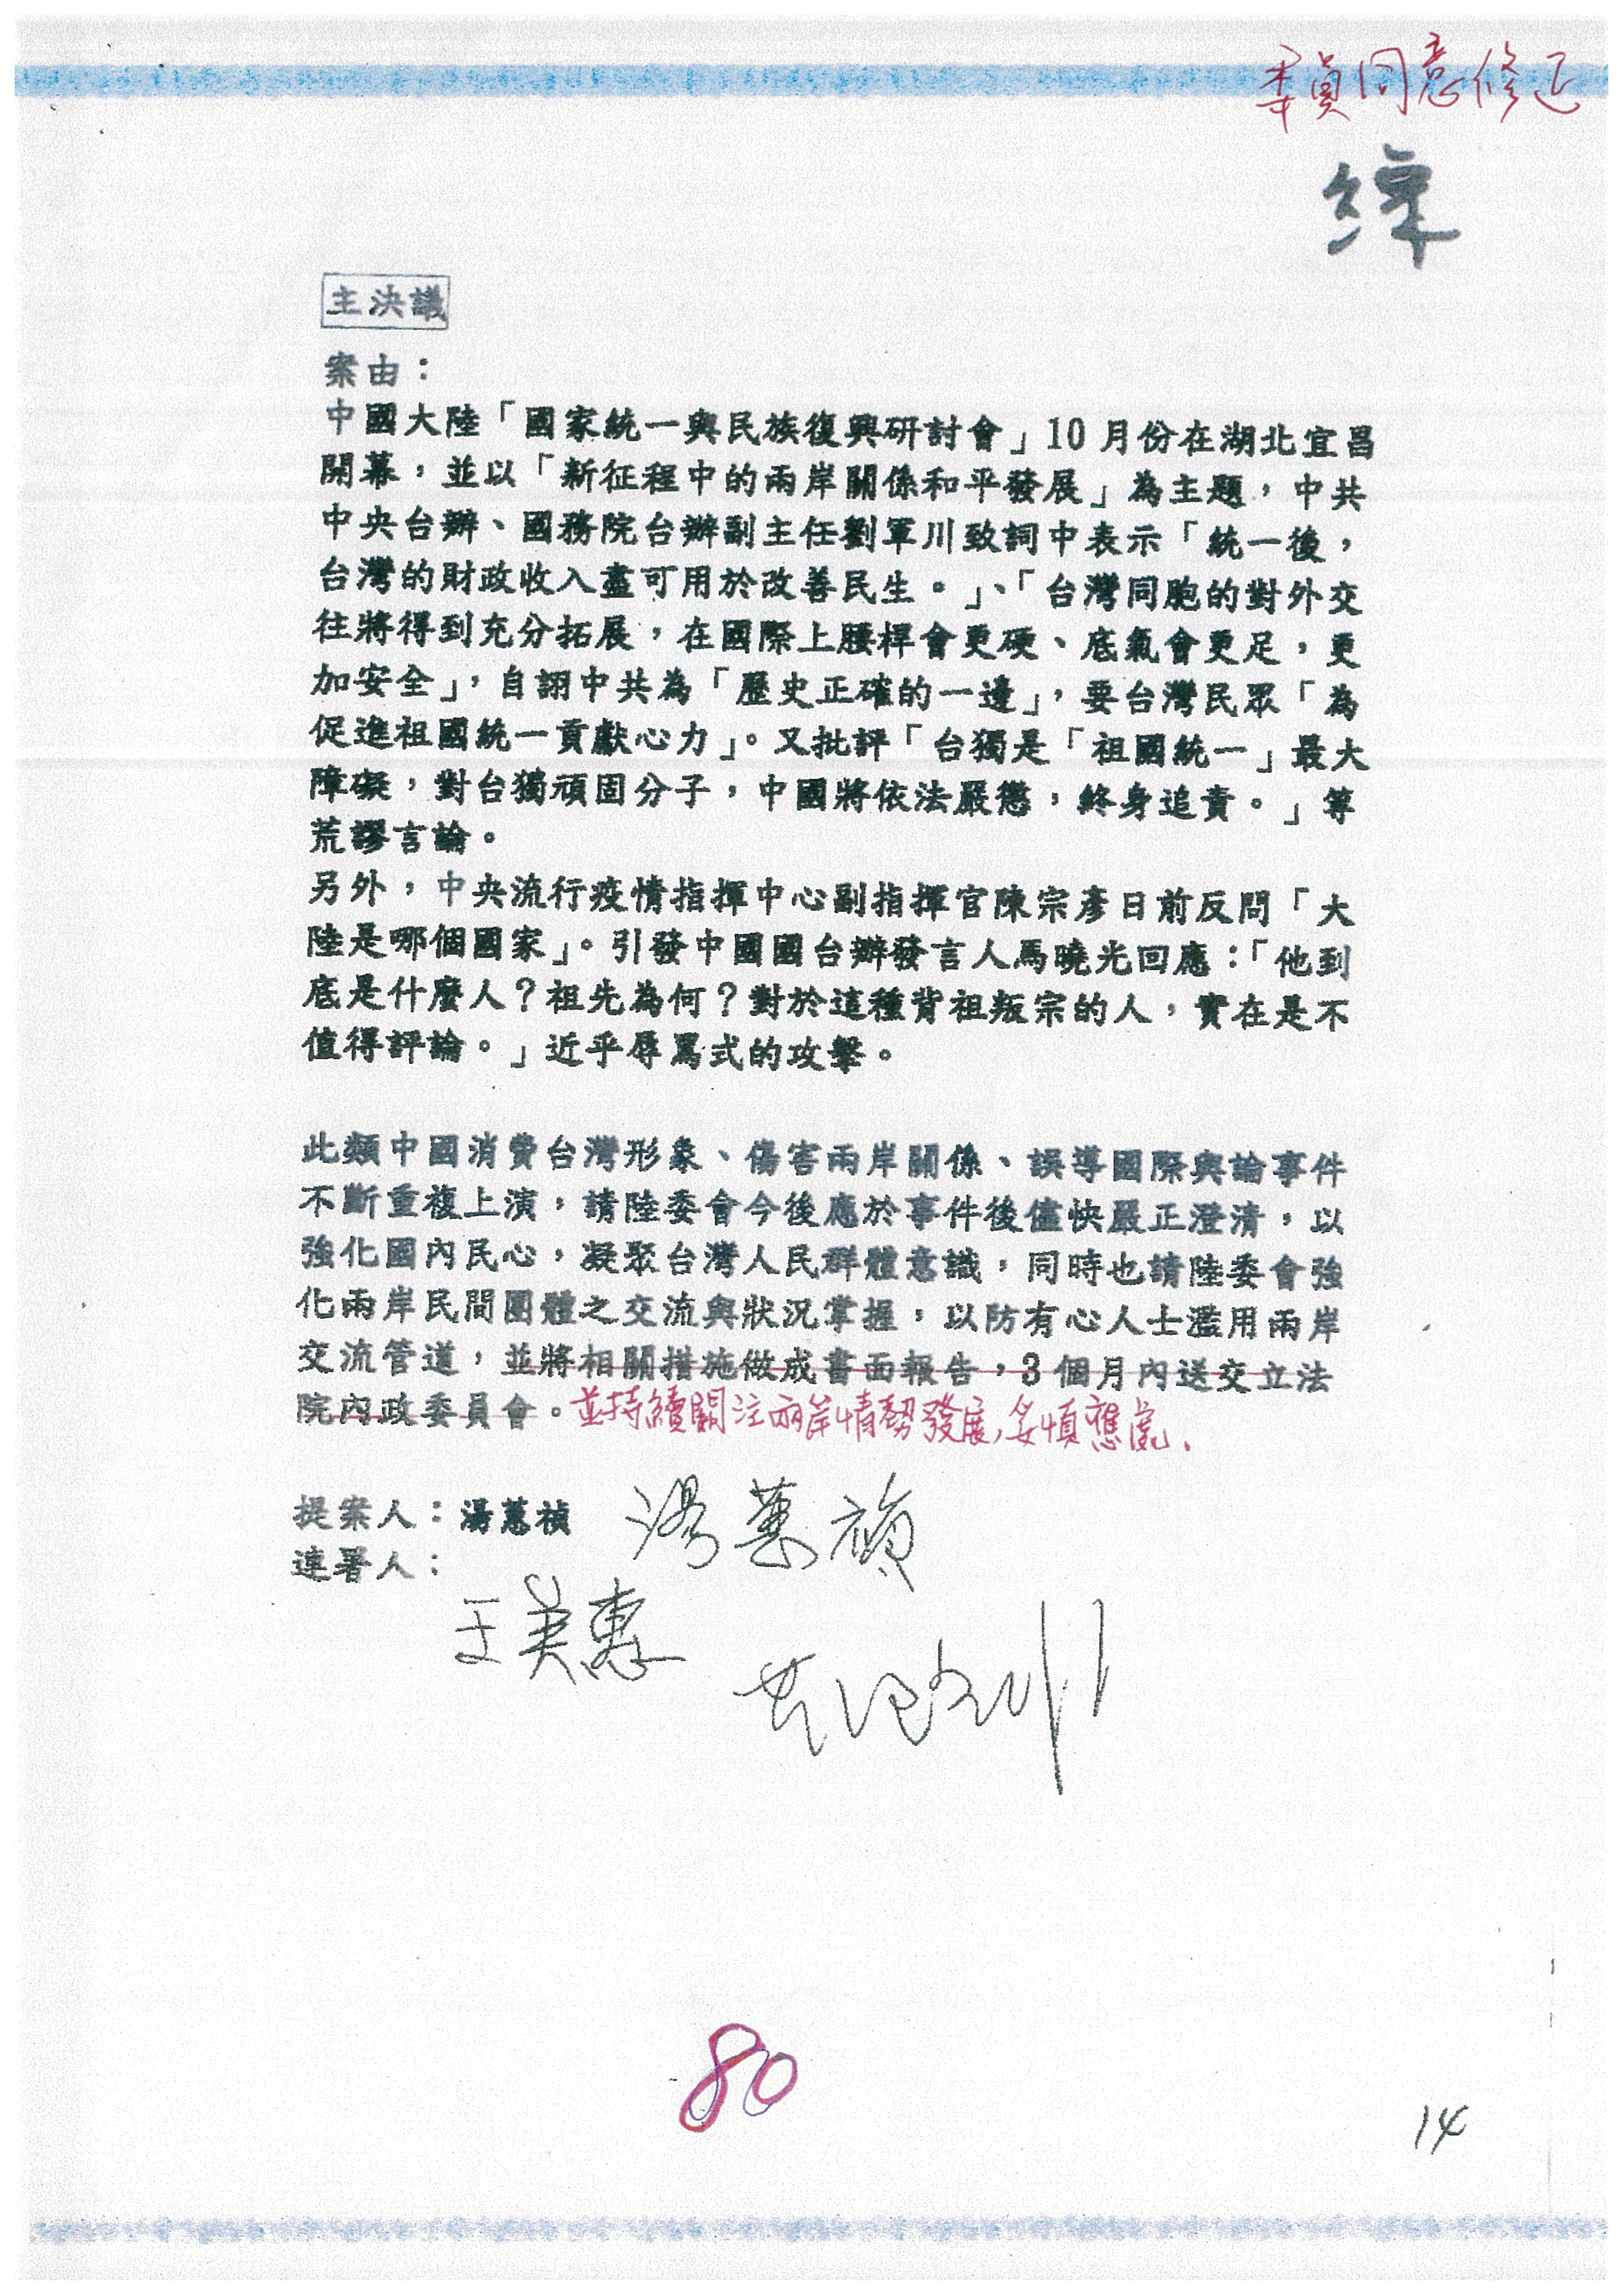 委員同意修正
主決議
案由：
中國大陸「國家統一與民族復興研討會」10月份在湖北宜昌
開幕，並以「新征程中的兩岸關係和平發展」為主題，中共
中央台辦、國務院台辦副主任劉軍川致詞中表示「統一後，
台灣的財政收入盡可用於改善民生。」、「台灣同胞的對外交
往將得到充分拓展，在國際上腰桿會更硬、底氣會更足，更
加安全」，自詡中共為「歷史正確的一邊」，要台灣民眾「為
促進祖國統一貢獻心力」。又批評「台獨是「祖國統一」最大
障礙，對台獨頑固分子，中國將依法嚴懲，終身追責。」等
荒謬言論。
另外，中央流行疫情指揮中心副指揮官陳宗彥日前反問「大
陸是哪個國家」。引發中國國台辦發言人馬曉光回應：「他到
底是什麼人？祖先為何？對於這種背祖叛宗的人，實在是不
值得評論。」近乎辱罵式的攻擊。
此類中國消費台灣形象、傷害兩岸關係、誤導國際輿論事件
不斷重複上演，請陸委會今後應於事件後儘快嚴正澄清，以
強化國內民心，凝聚台灣人民群體意識，同時也請陸委會強
化兩岸民間團體之交流與狀況掌握，以防有心人士濫用兩岸
交流管道，並將相關措施做成書面報告，3個月內送交立法
院內政委員會。並持續關注兩岸情勢發展，妥慎應處。
提案人：湯蕙禎 湯蕙禎
連署人：
王美惠
80
14